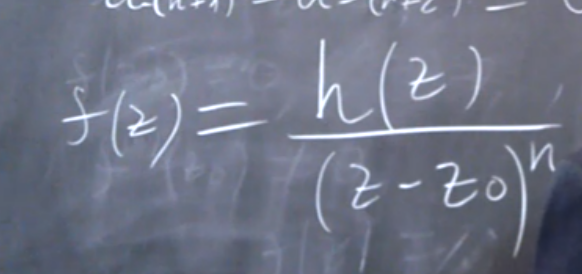 f(z) = h(z) / (z - z0)^n